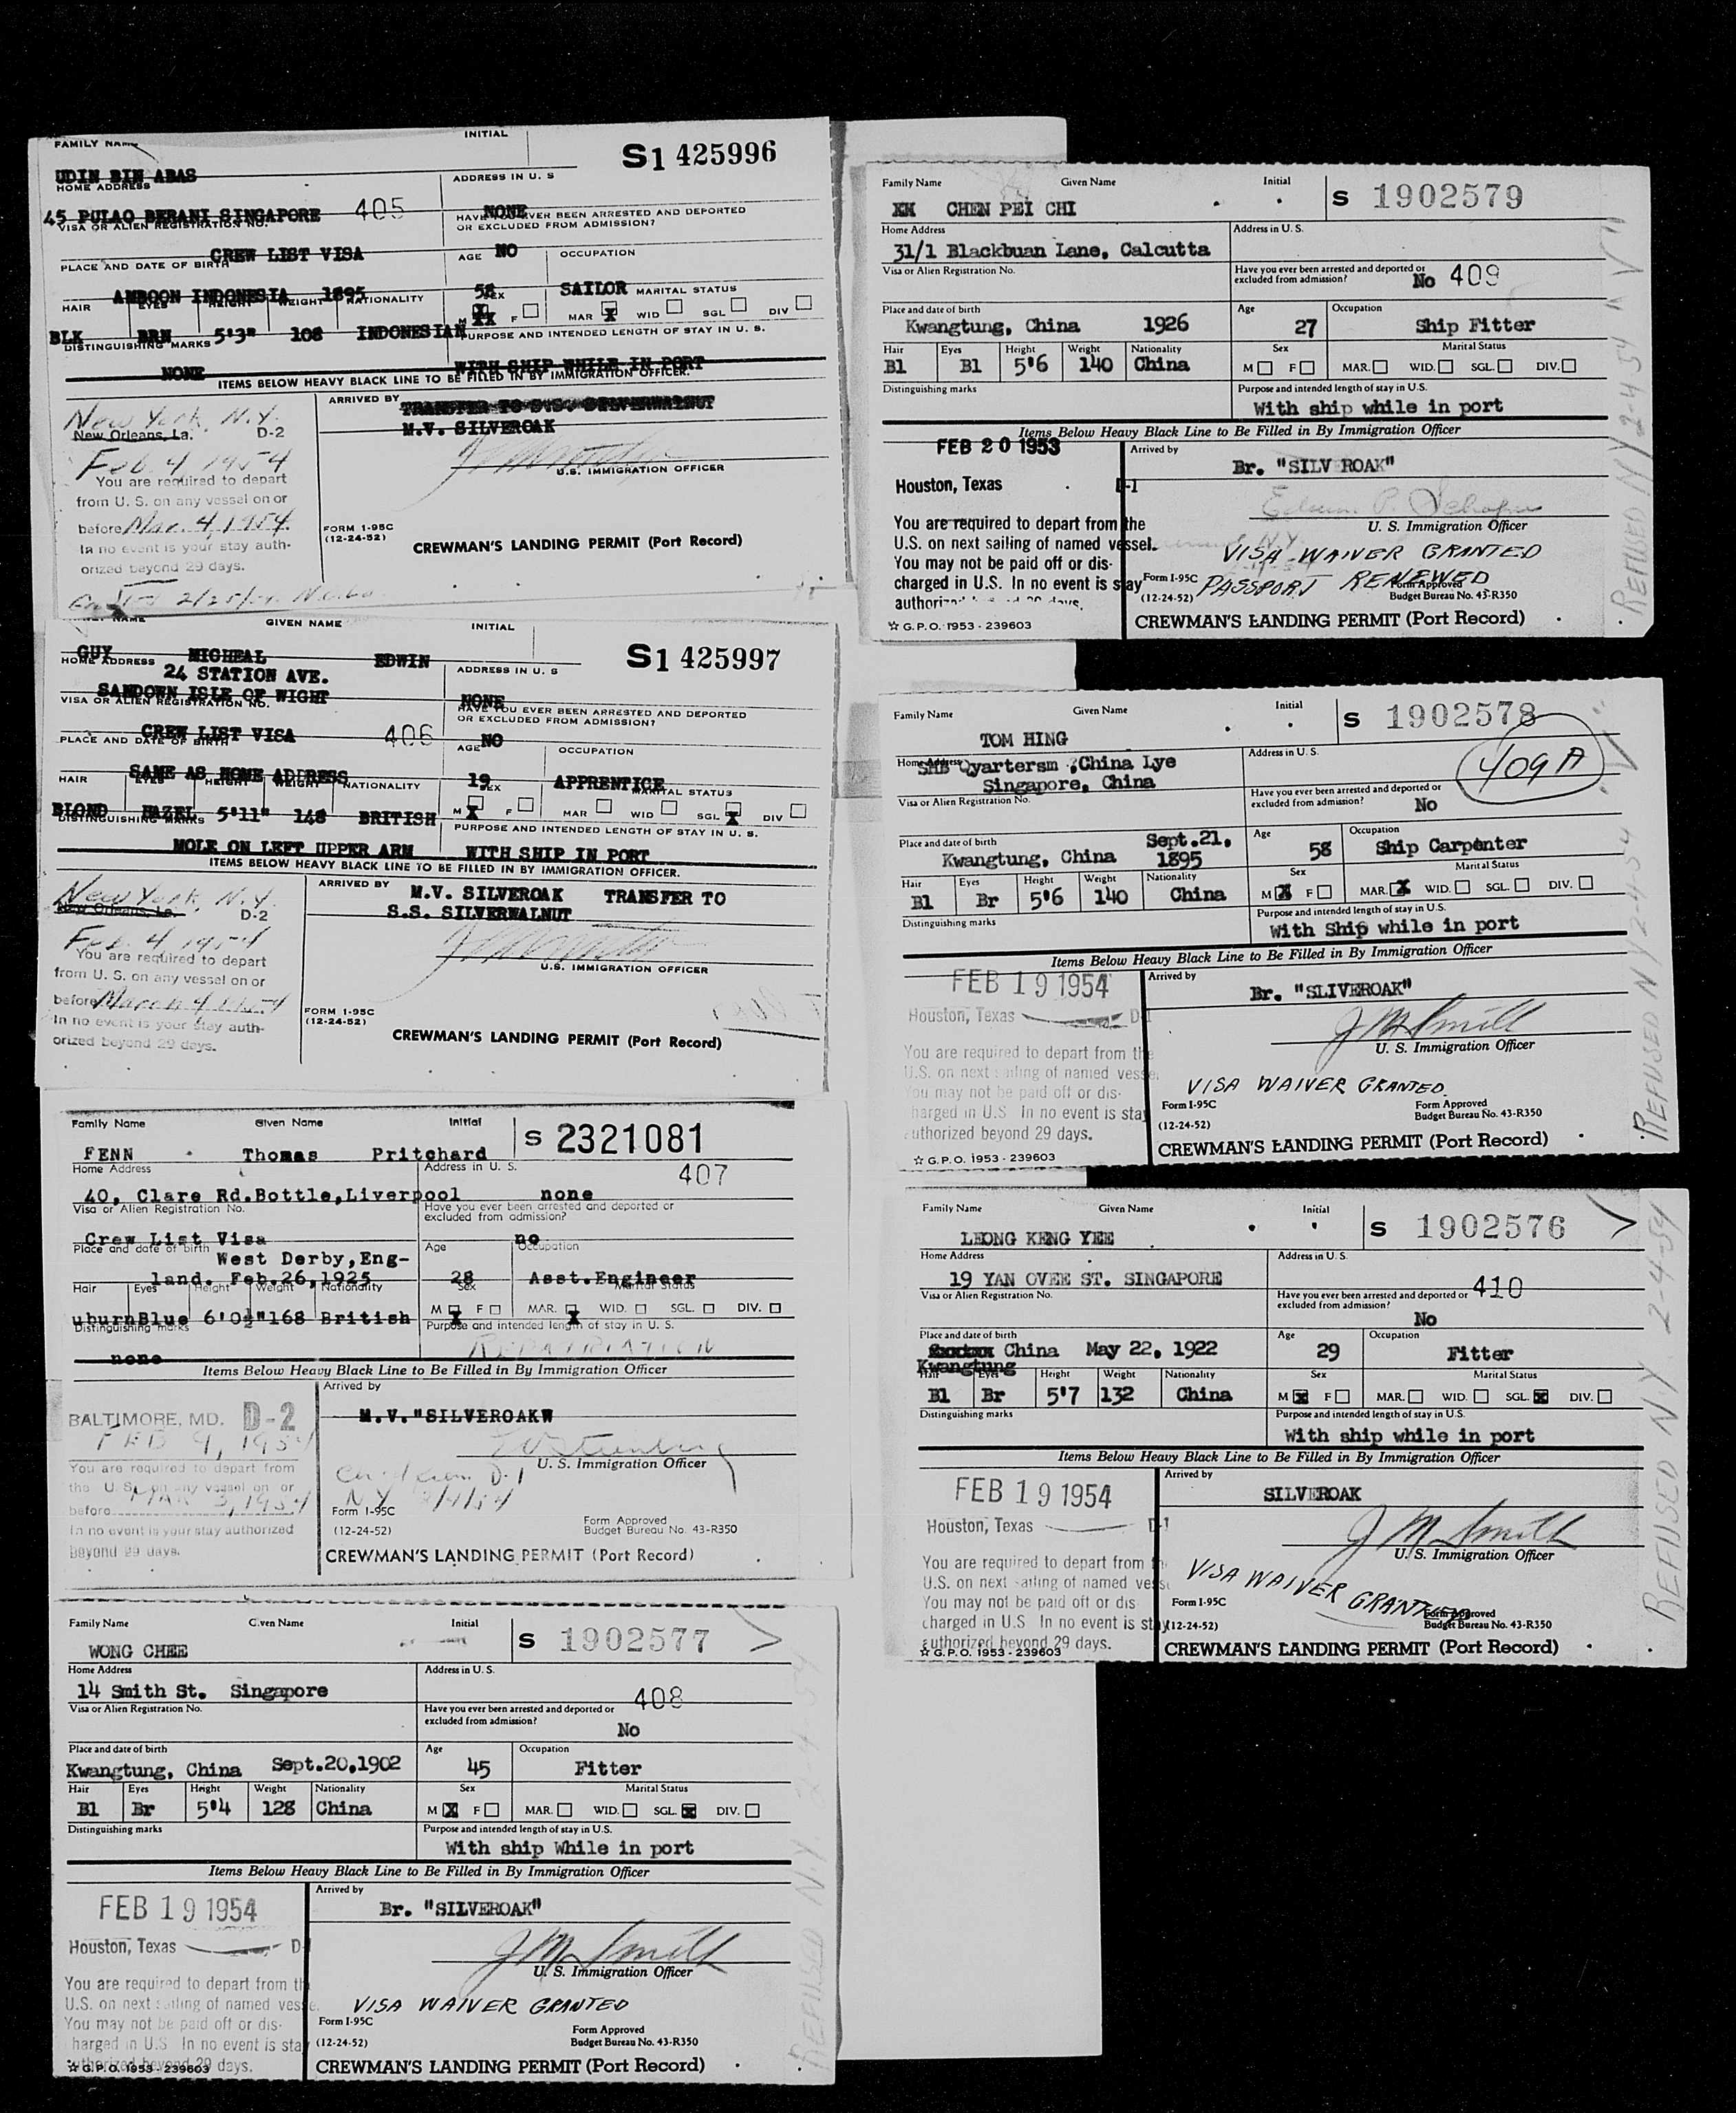 FAMILY NAME
INITIAL
S1 425996
UDIN BIN ABAS
HOME ADDRESS
ADDRESS IN U. S
45 PULAO BERANI SINGAPORE 405
NONE
VISA OR ALIEN REGISTRATION NO.
HAVE YOU EVER BEEN ARRESTED AND DEPORTED
OR EXCLUDED FROM ADMISSION?
CREW LIST VISA
NO
PLACE AND DATE OF BIRTH
AGE
OCCUPATION
AMBOON INDONESIA 1895
58
SAILOR
HAIR EYES HEIGHT WEIGHT NATIONALITY
SEX
MARITAL STATUS
M F MAR WID SGL DIV
BLK BRN 5'3" 108 INDONESIAN
DISTINGUISHING MARKS
PURPOSE AND INTENDED LENGTH OF STAY IN U. S.
NONE
WITH SHIP WHILE IN PORT
ITEMS BELOW HEAVY BLACK LINE TO BE FILLED IN BY IMMIGRATION OFFICER.
New York, N.Y.
New Orleans, La. D-2
Feb. 4, 1954
You are required to depart
from U. S. on any vessel on or
before Mar. 4, 1954.
In no event is your stay auth-
orized beyond 29 days.
ARRIVED BY
TRANSFER TO S.S. SILVERWALNUT
M.V. SILVEROAK
U.S. IMMIGRATION OFFICER
FORM 1-95C
(12-24-52)
CREWMAN'S LANDING PERMIT (Port Record)
2/25/54
NAME
GIVEN NAME
INITIAL
S1 425997
GUY MICHEAL EDWIN
HOME ADDRESS
ADDRESS IN U. S
24 STATION AVE.
SANDOWN ISLE OF WIGHT
NONE
VISA OR ALIEN REGISTRATION NO.
HAVE YOU EVER BEEN ARRESTED AND DEPORTED
OR EXCLUDED FROM ADMISSION?
CREW LIST VISA 406
NO
PLACE AND DATE OF BIRTH
AGE
OCCUPATION
SAME AS HOME ADDRESS
19
APPRENTICE
HAIR EYES HEIGHT WEIGHT NATIONALITY
SEX
MARITAL STATUS
M F MAR WID SGL DIV
BLOND HAZEL 5'11" 148 BRITISH
DISTINGUISHING MARKS
PURPOSE AND INTENDED LENGTH OF STAY IN U. S.
MOLE ON LEFT UPPER ARM
WITH SHIP IN PORT
ITEMS BELOW HEAVY BLACK LINE TO BE FILLED IN BY IMMIGRATION OFFICER.
New York, N.Y.
New Orleans, La. D-2
Feb. 4, 1954
You are required to depart
from U. S. on any vessel on or
before March 4, 1954
In no event is your stay auth-
orized beyond 29 days.
ARRIVED BY
M.V. SILVEROAK TRANSFER TO
S.S. SILVERWALNUT
U.S. IMMIGRATION OFFICER
FORM 1-95C
(12-24-52)
CREWMAN'S LANDING PERMIT (Port Record)
Family Name Given Name Initial
S 2321081
FENN Thomas Pritchard
407
Home Address
Address in U. S.
40, Clare Rd.Bottle,Liverpool
none
Visa or Alien Registration No.
Have you ever been arrested and deported or
excluded from admission?
Crew List Visa
no
Place and date of birth
Age
Occupation
West Derby,Eng-
land. Feb.26,1925
28
Asst.Engineer
Hair Eyes Height Weight Nationality
Sex
Marital Status
M F MAR. WID. SGL. DIV.
uburn Blue 6'0½"168 British
Distinguishing marks
Purpose and intended length of stay in U. S.
none
REPATRIATION
Items Below Heavy Black Line to Be Filled in By Immigration Officer
BALTIMORE, MD. D-2
FEB 9, 1954
You are required to depart from
the U. S. on any vessel on or
before MAR 3, 1954
In no event is your stay authorized
beyond 29 days.
Arrived by
M.V."SILVEROAK"
U. S. Immigration Officer
D-1
N.Y. 2/4/54
Form I-95C
(12-24-52)
Form Approved
Budget Bureau No. 43-R350
CREWMAN'S LANDING PERMIT (Port Record)
Family Name Given Name Initial
S 1902577
WONG CHEE
Home Address
Address in U. S.
14 Smith St. Singapore
408
Visa or Alien Registration No.
Have you ever been arrested and deported or
excluded from admission?
No
Place and date of birth
Age
Occupation
Kwangtung, China Sept.20,1902
45
Fitter
Hair Eyes Height Weight Nationality
Sex
Marital Status
Bl Br 5'4 128 China
M F MAR. WID. SGL. DIV.
Distinguishing marks
Purpose and intended length of stay in U.S.
With ship While in port
Items Below Heavy Black Line to Be Filled in By Immigration Officer
FEB 19 1954
Houston, Texas D-1
You are required to depart from the
U.S. on next sailing of named vessel.
You may not be paid off or dis-
harged in U.S In no event is stay
authorized beyond 29 days.
☆ G.P.O. 1953 - 239603
Arrived by
Br. "SILVEROAK"
J M Smith
U. S. Immigration Officer
VISA WAIVER GRANTED
Form I-95C
(12-24-52)
Form Approved
Budget Bureau No. 43-R350
CREWMAN'S LANDING PERMIT (Port Record)
REFUSED N.Y. 2-4-54
Family Name Given Name Initial
S 1902579
XX CHEN PEI CHI
Home Address
Address in U. S.
31/1 Blackbuan Lane, Calcutta
Visa or Alien Registration No.
Have you ever been arrested and deported or
excluded from admission?
No 409
Place and date of birth
Age
Occupation
Kwangtung, China 1926
27
Ship Fitter
Hair Eyes Height Weight Nationality
Sex
Marital Status
Bl Bl 5'6 140 China
M F MAR. WID. SGL. DIV.
Distinguishing marks
Purpose and intended length of stay in U.S.
With ship while in port
Items Below Heavy Black Line to Be Filled in By Immigration Officer
FEB 20 1953
Houston, Texas D-1
You are required to depart from the
U.S. on next sailing of named vessel.
You may not be paid off or dis-
charged in U.S. In no event is stay
authorized beyond 29 days.
☆ G.P.O. 1953 - 239603
Arrived by
Br. "SILV ROAK"
U. S. Immigration Officer
VISA WAIVER GRANTED
PASSPORT RENEWED
Form I-95C
(12-24-52)
Form Approved
Budget Bureau No. 43-R350
CREWMAN'S LANDING PERMIT (Port Record)
REFUSED NY 2-4-54
Family Name Given Name Initial
S 1902578
TOM HING
409A
Home Address
Address in U. S.
SHB Qyartersm ,China Lye
Singapore, China
Visa or Alien Registration No.
Have you ever been arrested and deported or
excluded from admission?
No
Place and date of birth
Age
Occupation
Sept.21,
Kwangtung, China 1895
58
Ship Carpenter
Hair Eyes Height Weight Nationality
Sex
Marital Status
Bl Br 5'6 140 China
M F MAR. WID. SGL. DIV.
Distinguishing marks
Purpose and intended length of stay in U.S.
With Ship while in port
Items Below Heavy Black Line to Be Filled in By Immigration Officer
FEB 19 1954
Houston, Texas D-1
You are required to depart from the
U.S. on next sailing of named vessel.
You may not be paid off or dis-
harged in U.S In no event is stay
uthorized beyond 29 days.
☆ G.P.O. 1953 - 239603
Arrived by
Br. "SLIVEROAK"
J M Smith
U. S. Immigration Officer
VISA WAIVER GRANTED
Form I-95C
(12-24-52)
Form Approved
Budget Bureau No. 43-R350
CREWMAN'S LANDING PERMIT (Port Record)
REFUSED NY 2-4-54
Family Name Given Name Initial
S 1902576
LEONG KENG YEE
Home Address
Address in U. S.
19 YAN OVEE ST. SINGAPORE
410
Visa or Alien Registration No.
Have you ever been arrested and deported or
excluded from admission?
No
Place and date of birth
Age
Occupation
China May 22, 1922
Kwangtung
29
Fitter
Hair Eyes Height Weight Nationality
Sex
Marital Status
Bl Br 5'7 132 China
M F MAR. WID. SGL. DIV.
Distinguishing marks
Purpose and intended length of stay in U.S.
With ship while in port
Items Below Heavy Black Line to Be Filled in By Immigration Officer
FEB 19 1954
Houston, Texas D-1
You are required to depart from the
U.S. on next sailing of named vessel
You may not be paid off or dis
charged in U.S In no event is stay
authorized beyond 29 days.
☆ G.P.O. 1953 - 239603
Arrived by
SILVEROAK
J M Smith
U. S. Immigration Officer
VISA WAIVER GRANTED
Form I-95C
(12-24-52)
Form Approved
Budget Bureau No. 43-R350
CREWMAN'S LANDING PERMIT (Port Record)
REFUSED NY 2-4-54